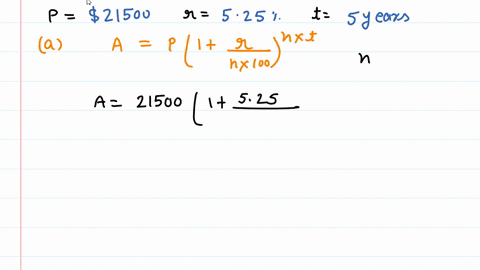 P = $21500 r = 5.25% t = 5 years
(a) A = P(1 + r/(n×100))^(n×t)
n
A = 21500 (1 + 5.25